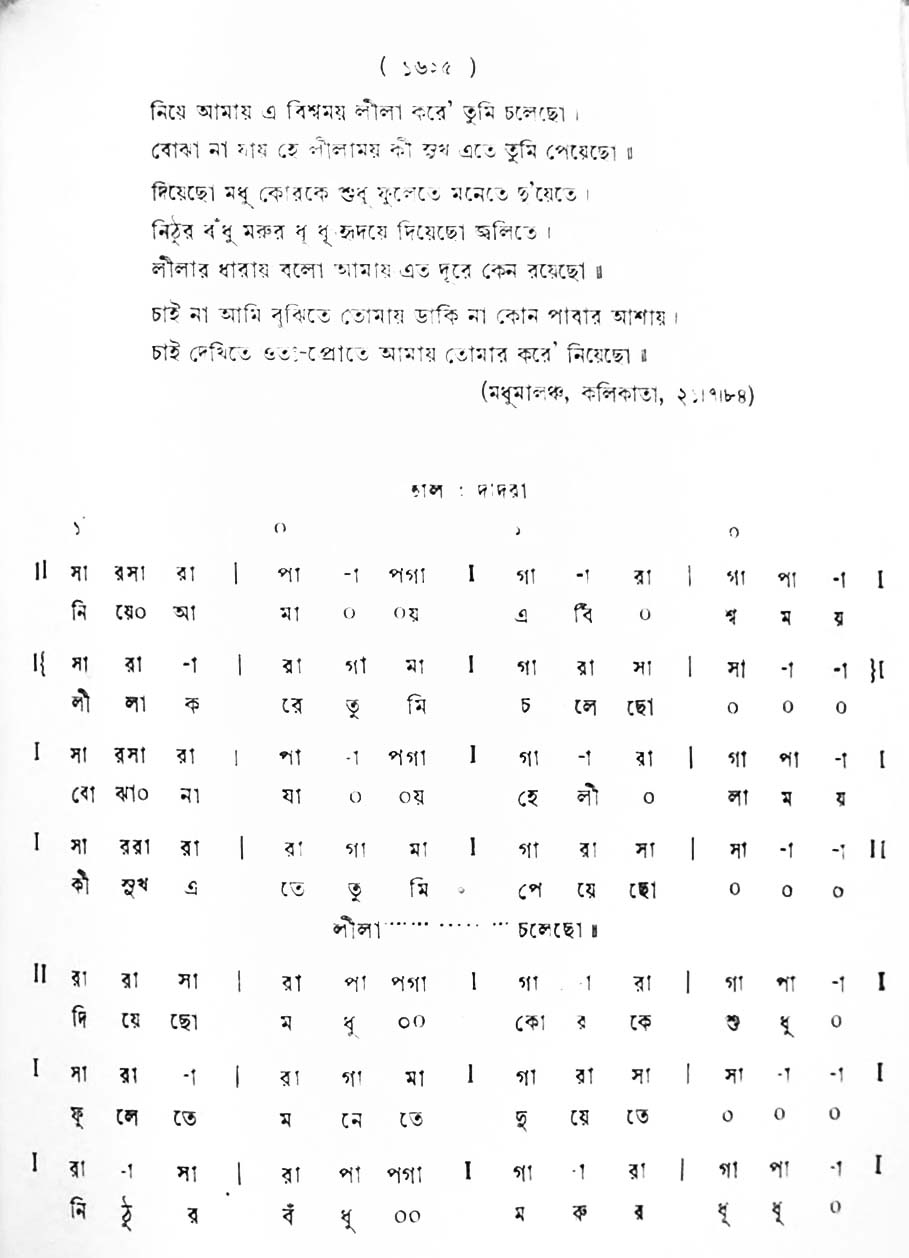 ( ১৬০৫ )
নিয়ে আমায় এ বিশ্বময় লীলা করে' তুমি চলেছো ।
বোঝা না যায় হে লীলাময় কী সুখ এতে তুমি পেয়েছো ॥
দিয়েছো মধু কোরকে শুধু ফুলেতে মনেতে দু'য়েতে ।
নিঠুর বঁধু মরুর ধূ ধূ হৃদয়ে দিয়েছো জ্বলিতে ।
লীলার ধারায় বলো আমায় এত দূরে কেন রয়েছো ॥
চাই না আমি বুঝিতে তোমায় ডাকি না কোন পাবার আশায় ।
চাই দেখিতে ওতঃ-প্রোতে আমায় তোমার করে' নিয়েছো ॥
(মধুমালঞ্চ, কলিকাতা, ২১।৭।৮৪)
তাল : দাদরা
১ ০ ১ ০
II সা রসা রা | পা -া পগা I গা -া রা | গা পা -া I
নি য়ে০ আ মা ০ ০য় এ বি ০ শ্ব ম য়
I{ সা রা -া | রা গা মা I গা রা সা | সা -া -া }I
লী লা ক রে তু মি চ লে ছো ০ ০ ০
I সা রসা রা | পা -া পগা I গা -া রা | গা পা -া I
বো ঝা০ না যা ০ ০য় হে লী ০ লা ম য়
I সা ররা রা | রা গা মা I গা রা সা | সা -া -া II
কী সুখ এ তে তু মি পে য়ে ছো ০ ০ ০
লীলা ... ... ... চলেছো ॥
II রা রা সা | রা পা পগা I গা -া রা | গা পা -া I
দি য়ে ছো ম ধু ০০ কো র কে শু ধু ০
I সা রা -া | রা গা মা I গা রা সা | সা -া -া I
ফু লে তে ম নে তে দু য়ে তে ০ ০ ০
I রা -া সা | রা পা পগা I গা -া রা | গা পা -া I
নি ঠু র বঁ ধু ০০ ম রু র ধূ ধূ ০